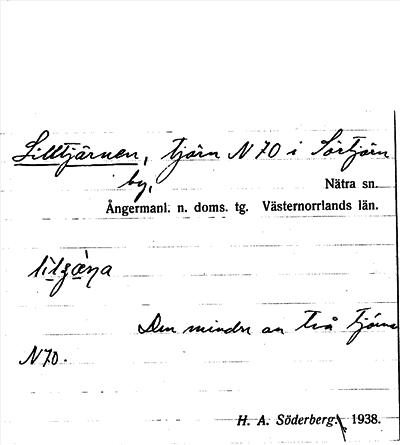 Lilltjärnen, tjärn N 70 i Sörtjärn
by,
Nätra sn.
Ångermanl. n. doms. tg. Västernorrlands län.
Den mindre av två tjärnar
N70.
H. A. Söderberg. 1938.